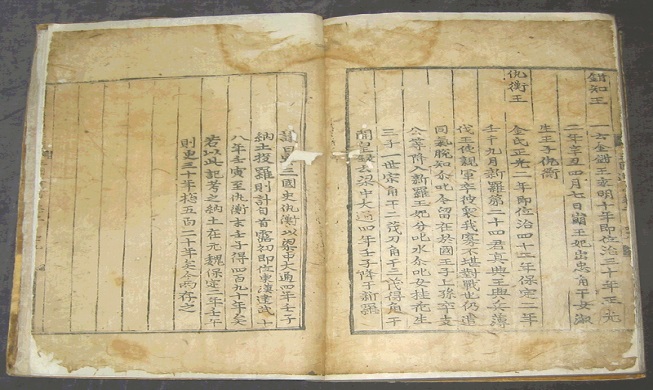 鉗知王
一云金鉗王永明十年即位治三十年正光
二年辛丑四月七日崩王妃出忠角干女淑
生王子仇衡
仇衡王
金氏正光二年即位治四十二年保定二年
壬午九月新羅第二十四君真興王興兵薄
伐王使親軍卒彼衆我寡不堪對戰也仍遣
同氣脫知尒叱今留在於國王子上孫卒支
公等降入新羅王妃分叱水尒叱女桂花生
三子一世宗角干二茂刀角干三茂得角干
開皇錄云梁中大通四年壬子降于新羅
議曰三國史仇衡以梁中大通四年壬子
納土投羅則計自首露初即位東漢建武十
八年壬寅至仇衡末壬子得四百九十年矣
若以此記考之納土在元魏保定二年壬午
則更三十年總五百二十年矣今兩存之